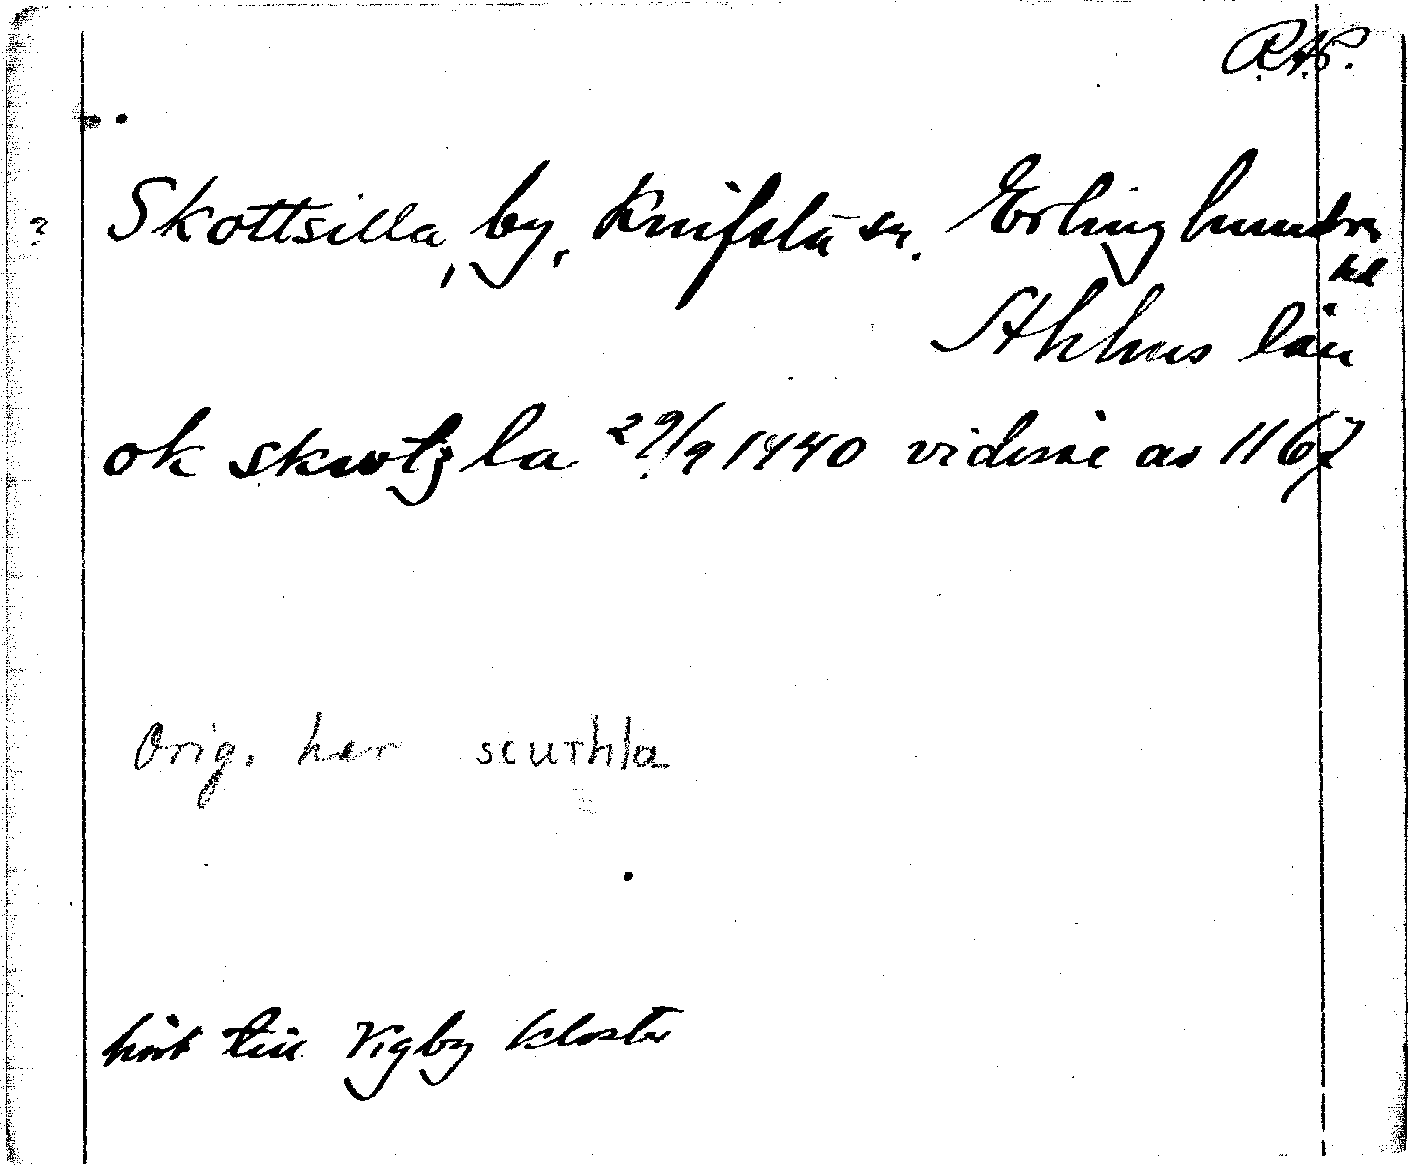 R.A.P.
? Skottsilla, by, Knifsta sn. Erlinghundra
hd
Sthhms län
ok skwotzla 29/9 1440 vidisse av 1167
Orig. har scuthla
hört till Vigby kloster